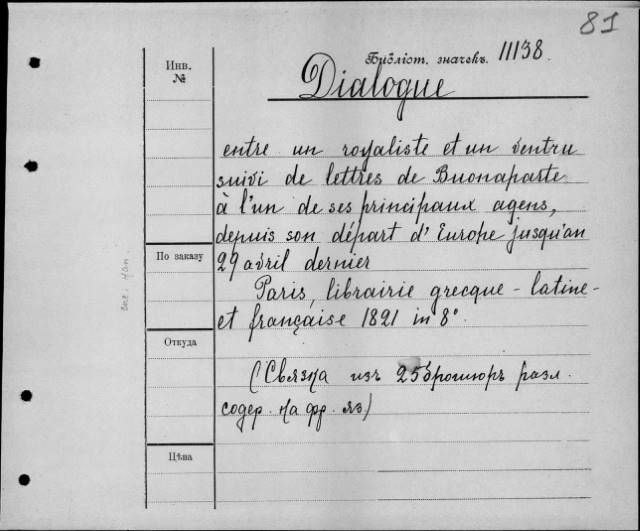 81
Библіот. значекъ. 11138.
Инв.
№
Dialogue
entre un royaliste et un ventru
suivi de lettres de Buonaparte
à l'un de ses principaux agens,
depuis son départ d'Europe jusqu'an
По заказу
29 avril dernier
Paris, librairie grecque-latine-
et française 1821 in 8°.
Откуда
(Связка изъ 25 брошюръ разл.
содер. на фр. яз)
Цѣна